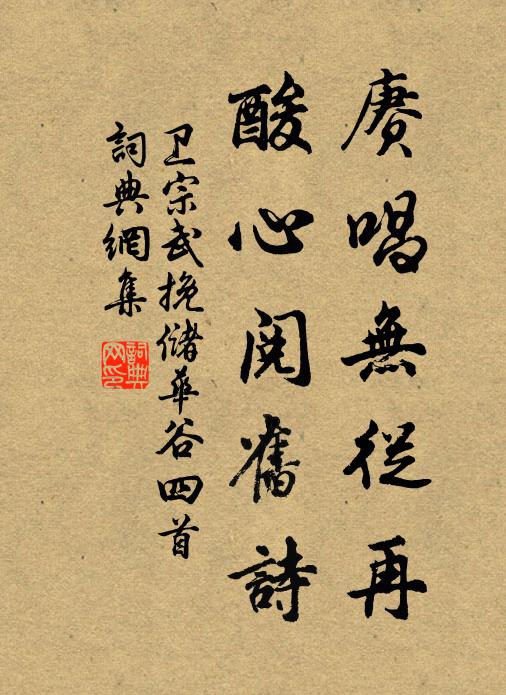 赓唱無從再
酸心閱舊詩
卫宗武挽儲華谷四首
詞典網集
詞典网印